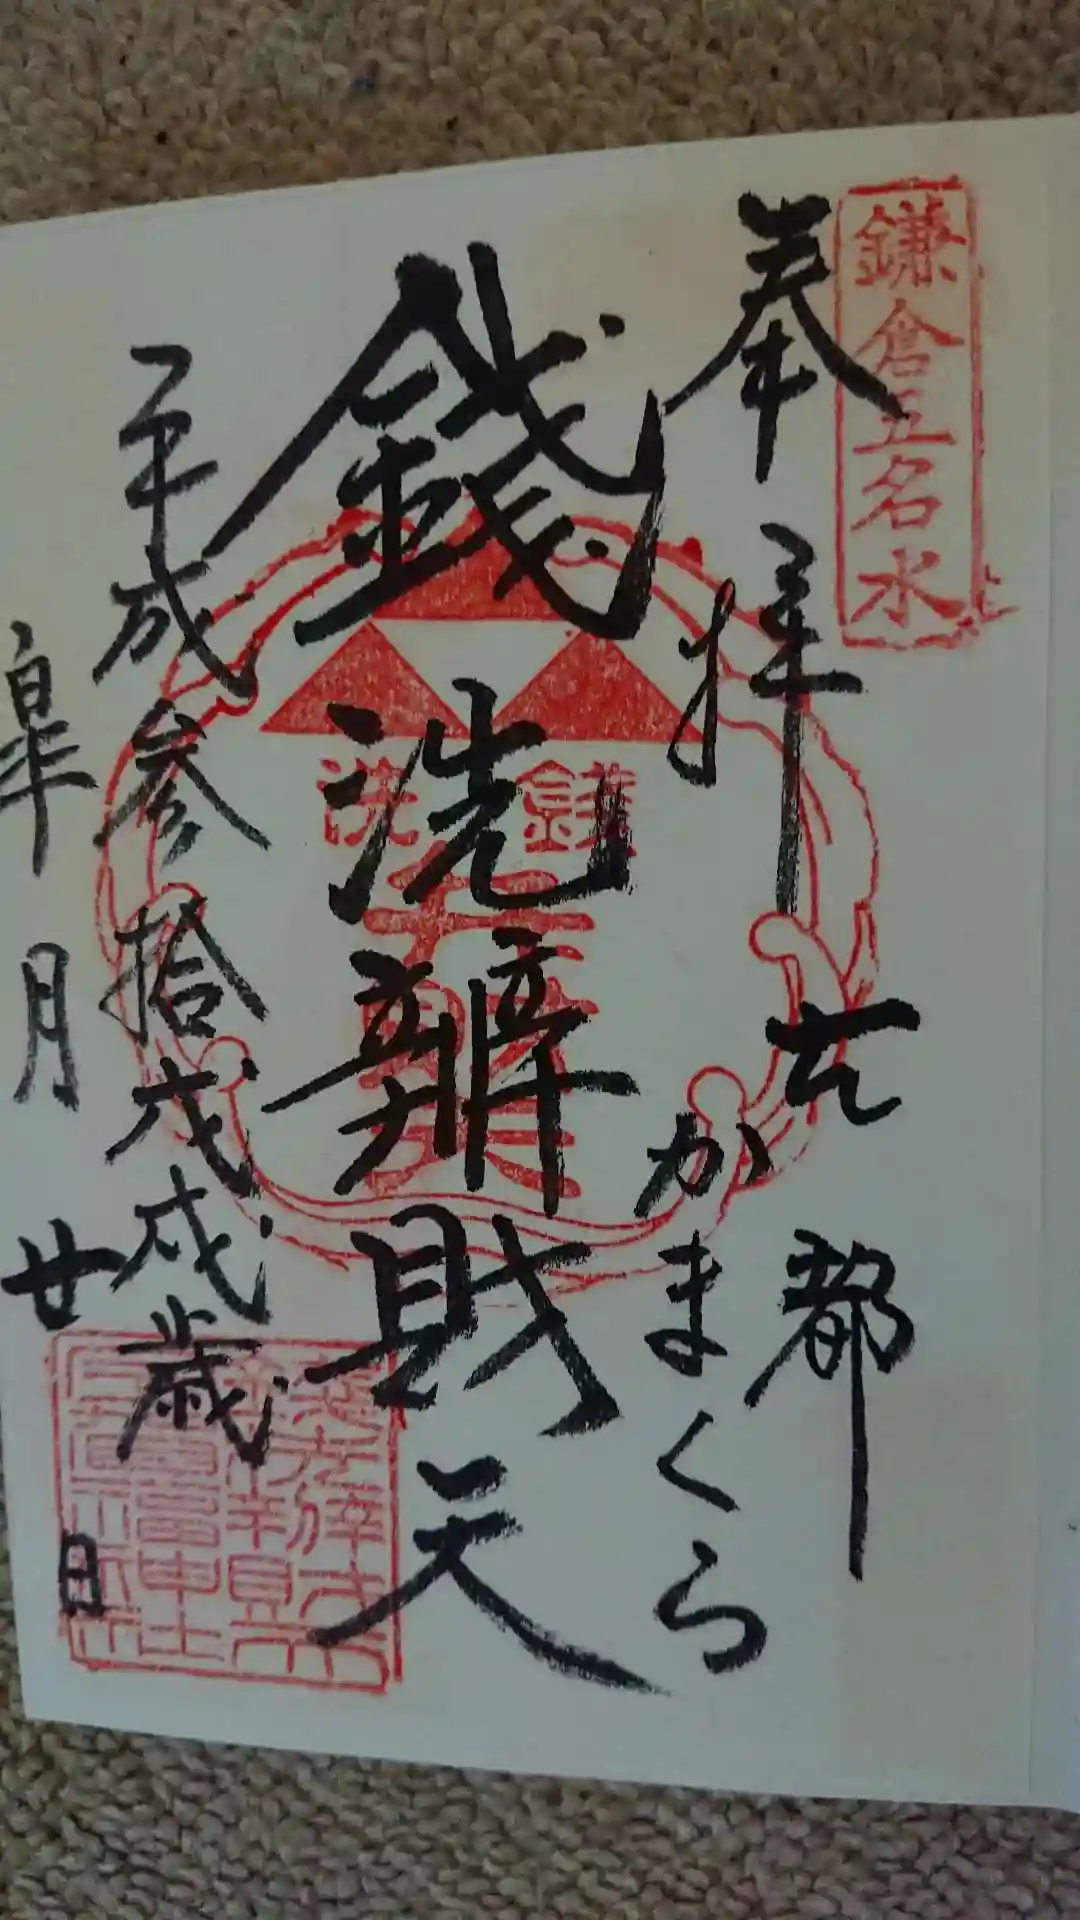 鎌倉五名水
奉拝
古都
かまくら
銭洗辨財天
銭洗
平成参拾戊戌歳
皐月廿日